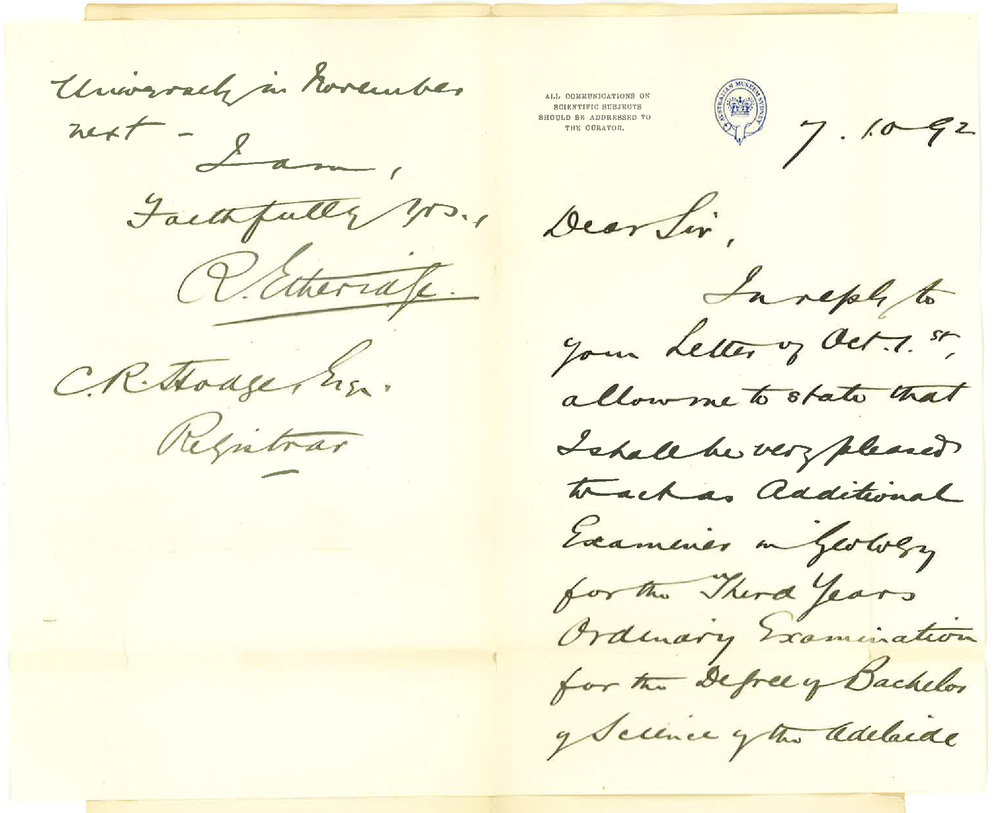 ALL COMMUNICATIONS ON
SCIENTIFIC SUBJECTS
SHOULD BE ADDRESSED TO
THE CURATOR.
AUSTRALIAN MUSEUM SYDNEY
7.10.92
Dear Sir,
In reply to
your Letter of Oct. 1.st,
allow me to state that
I shall be very pleased
to act as Additional
Examiner in Geology
for the Third Years
Ordinary Examination
for the Degree of Bachelor
of Science of the Adelaide
University in November
next –
I am,
Faithfully Yrs.,
R. Etheridge.
C.R. Hodge, Esqr.
Registrar